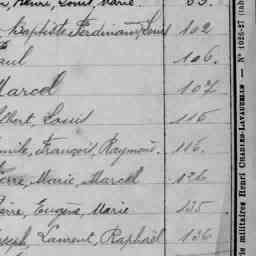 , Henri, Louis, Marie. 63.
Baptiste Ferdinand Louis 102
Paul 106.
Marcel 107
Albert, Louis 115
Emile, François, Raymond. 115.
Pierre, Marie, Marcel 126
Pierre, Eugène, Marie 135
Joseph, Laurent, Raphaël 136
ie militaires Henri CHARLES-LAVAUZELLE — N° 1026-27